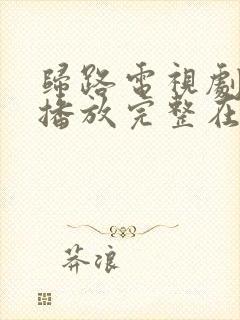 歸路電視劇
播放完整在
莽浪